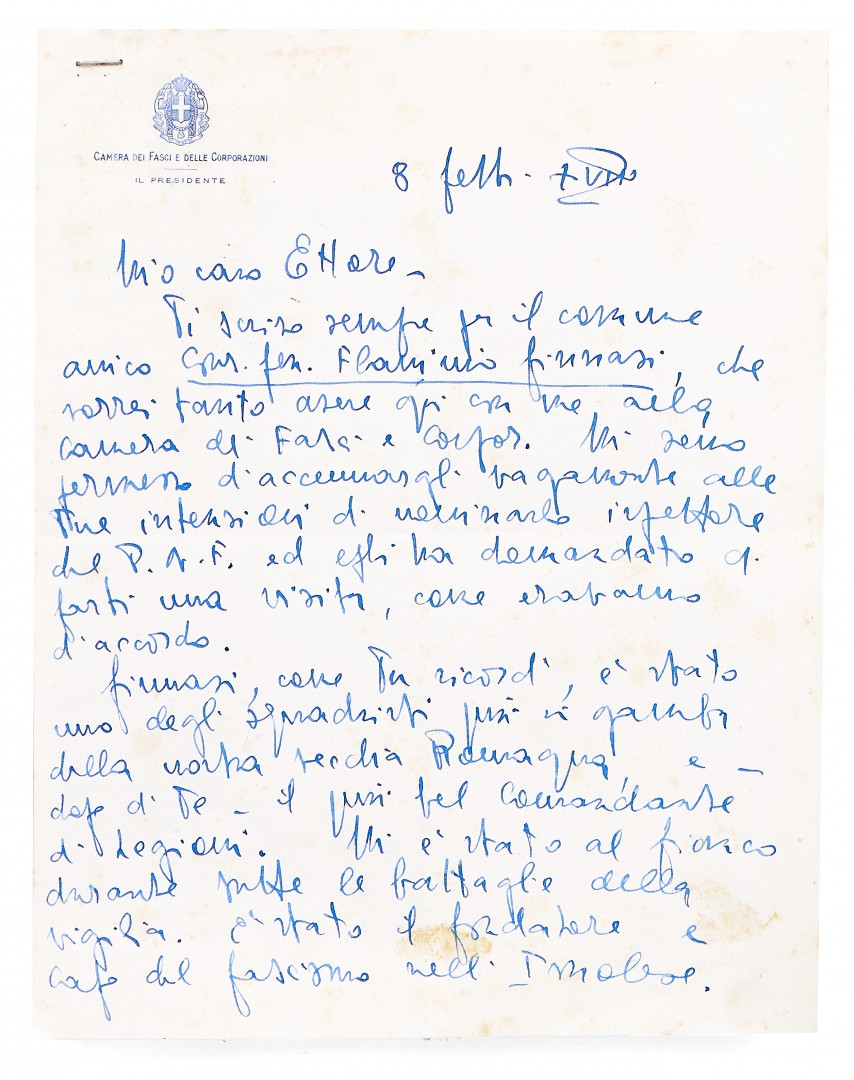 CAMERA DEI FASCI E DELLE CORPORAZIONI
IL PRESIDENTE
8 febb. XVIII°
Mio caro Ettore -
Ti scrivo sempre per il comune
amico Cons. Gen. Flaminio Ginnasi, che
vorrei tanto avere qui con me alla
Camera dei Fasci e Corpor. Mi sono
permesso d'accennargli vagamente alle
Tue intenzioni di nominarlo ispettore
del P.N.F. ed egli ha domandato di
farti una visita, come eravamo
d'accordo.
Ginnasi, come Tu ricordi, è stato
uno degli squadristi più in gamba
della nostra vecchia Romagna, e -
dopo di Te - il più bel Comandante
di Legioni. Mi è stato al fianco
durante tutte le battaglie della
vigilia. È stato il fondatore e
capo del fascismo nell' Imolese.